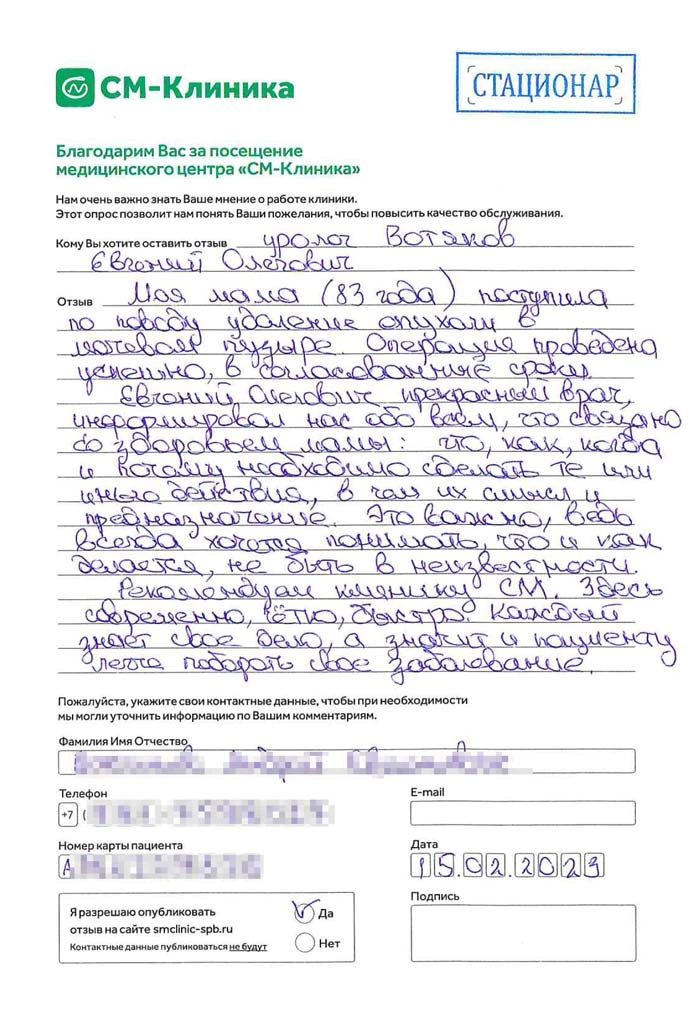 СМ-Клиника
СТАЦИОНАР
Благодарим Вас за посещение
медицинского центра «СМ-Клиника»
Нам очень важно знать Ваше мнение о работе клиники.
Этот опрос позволит нам понять Ваши пожелания, чтобы повысить качество обслуживания.
Кому Вы хотите оставить отзыв уролог Вотяков
Евгений Олегович
Отзыв Моя мама (83 года) поступила
по поводу удаление опухоли в
мочевом пузыре. Операция проведена
успешно, в согласованные сроки
Евгений Олегович прекрасный врач,
информировал нас обо всём, что связано
со здоровьем мамы: что, как, когда
и почему необходимо сделать те или
иные действия, в чем их смысл и
предназначение. Это важно, ведь
всегда хочется понимать, что и как
делается, не быть в неизвестности.
Рекомендуем клинику СМ. Здесь
современно, чётко, быстро. Каждый
знает свое дело, а значит и пациенту
легче побороть свое заболевание.
Пожалуйста, укажите свои контактные данные, чтобы при необходимости
мы могли уточнить информацию по Вашим комментариям.
Фамилия Имя Отчество
Телефон
+7 (
E-mail
Номер карты пациента
А
Дата
15.02.2023
Я разрешаю опубликовать
отзыв на сайте smclinic-spb.ru
Контактные данные публиковаться не будут
Да
Нет
Подпись